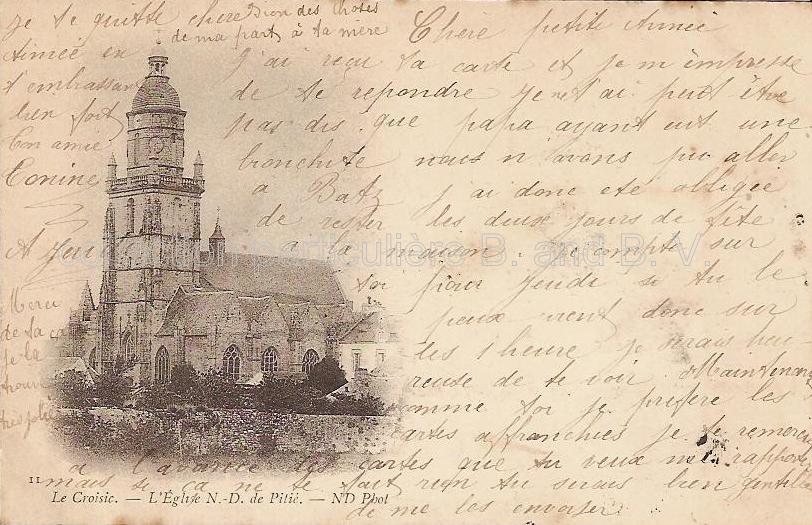 Chère petite Aimée
J'ai reçu ta carte et je m'empresse
de te repondre Je ne t'ai peut être
pas dis que papa ayant eut une
bronchite nous n'avons pu aller
a Batz j'ai donc ete obligée
de rester les deux jours de fête
a la maison. Je compte sur
toi pour jeudi si tu le
peux vient donc sur
les 1 heure je serais heu-
reuse de te voir. Maintenant
comme toi je préfère les
cartes affranchies je te remercie
a l'avance des cartes que tu veux me rapporter
mais si ça ne te fait rien tu serais bien gentille
de me les envoyer
je te quitte chere
Aimée en
t'embrassant
bien fort
Ton amie
Eonine
A Jeudi
Bien des choses
de ma part à ta mère
Merci
de ta ca
je la
trouve
très jolie
Collection particulière B. and B. V.
11
Le Croisic. — L'Église N.-D. de Pitié. — ND Phot